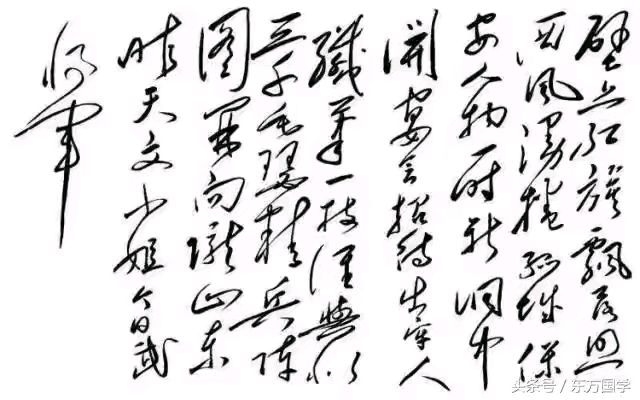 壁上红旗飘落照
西风漫捲孤城保
安人物一时新洞中
開宴会招待出牢人
纖笔一枝谁與似
三千毛瑟精兵陣
图開向隴山东
昨天文小姐今日武
将軍
头条号 / 东方国学